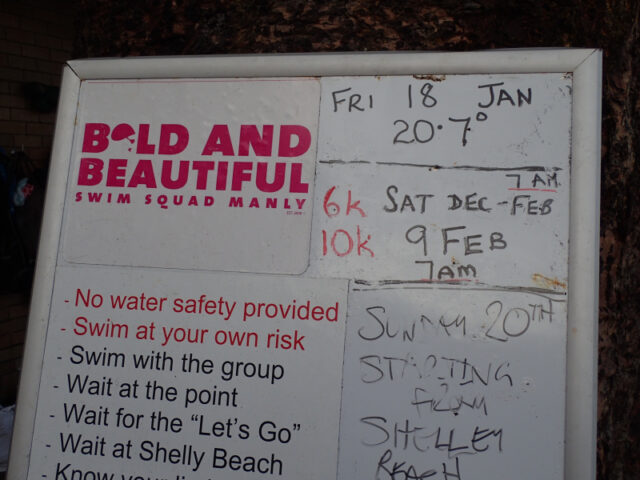 BOLD AND
BEAUTIFUL
SWIM SQUAD MANLY
FRI 18 JAN
20.7°
7 AM
6k SAT DEC - FEB
10k 9 FEB
7AM
- No water safety provided
- Swim at your own risk
- Swim with the group
- Wait at the point
- Wait for the “Let's Go”
- Wait at Shelly Beach
SUNDAY 20TH
STARTING
FROM
SHELLEY
BEACH